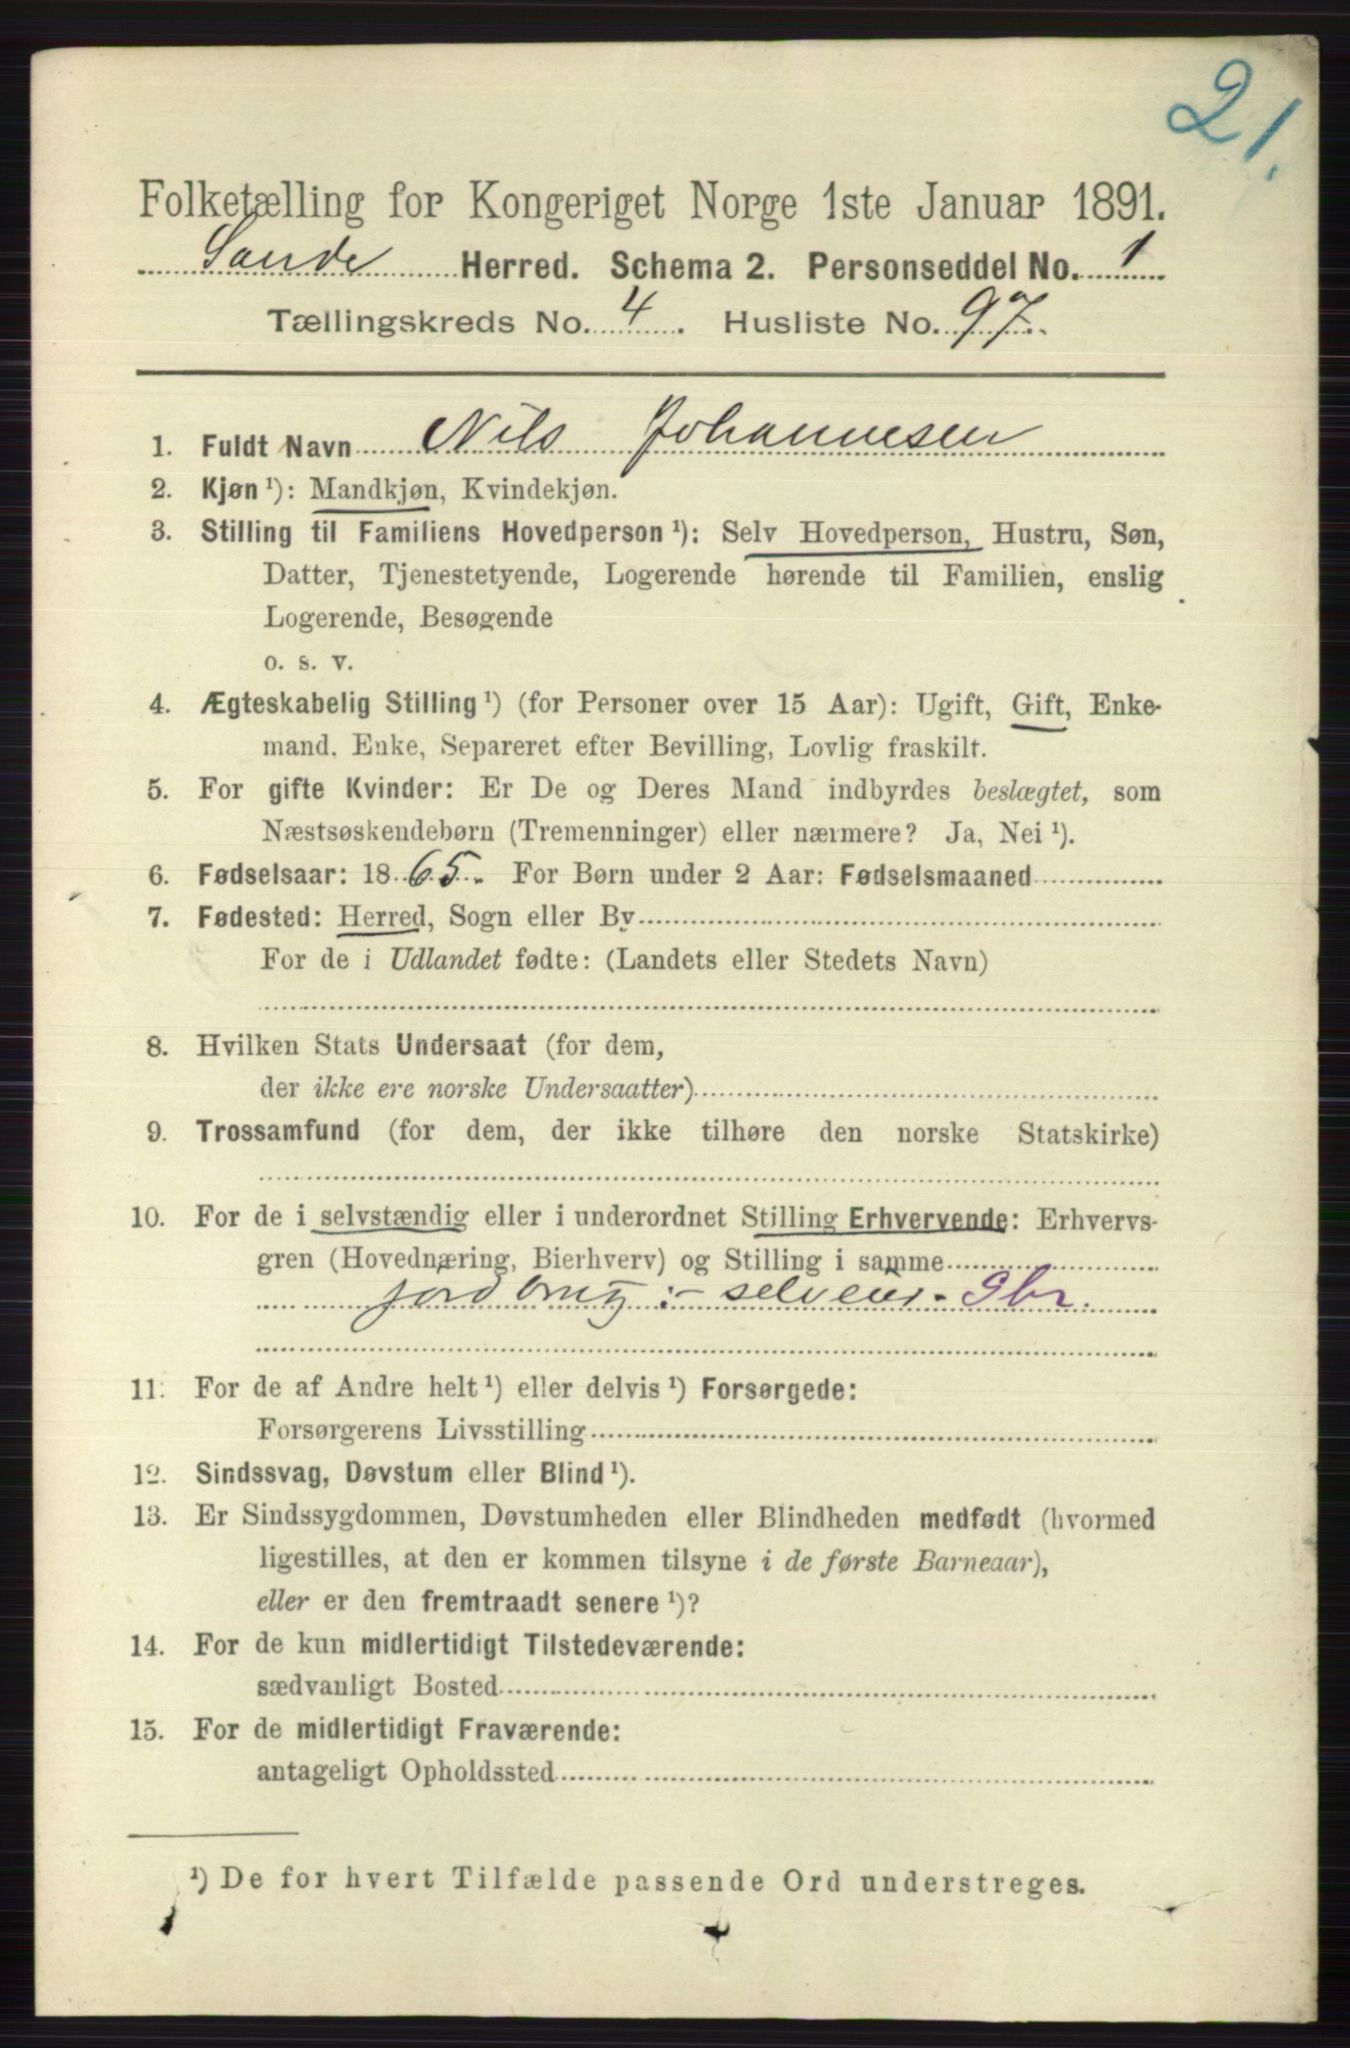 21.
Folketælling for Kongeriget Norge 1ste Januar 1891.
Sande Herred. Schema 2. Personseddel No. 1
Tællingskreds No. 4. Husliste No. 97.
1. Fuldt Navn Nils Johannesen
2. Kjøn¹): Mandkjøn, Kvindekjøn.
3. Stilling til Familiens Hovedperson¹): Selv Hovedperson, Hustru, Søn,
Datter, Tjenestetyende, Logerende hørende til Familien, enslig
Logerende, Besøgende
o. s. v.
4. Ægteskabelig Stilling¹) (for Personer over 15 Aar): Ugift, Gift, Enke-
mand, Enke, Separeret efter Bevilling, Lovlig fraskilt.
5. For gifte Kvinder: Er De og Deres Mand indbyrdes beslægtet, som
Næstsøskendebørn (Tremenninger) eller nærmere? Ja, Nei¹).
6. Fødselsaar: 1865. For Børn under 2 Aar: Fødselsmaaned
7. Fødested: Herred, Sogn eller By
For de i Udlandet fødte: (Landets eller Stedets Navn)
8. Hvilken Stats Undersaat (for dem,
der ikke ere norske Undersaatter)
9. Trossamfund (for dem, der ikke tilhøre den norske Statskirke)
10. For de i selvstændig eller i underordnet Stilling Erhvervende: Erhvervs-
gren (Hovednæring, Bierhverv) og Stilling i samme
jordbrug:- selveier. Gbr.
11. For de af Andre helt¹) eller delvis¹) Forsørgede:
Forsørgerens Livsstilling
12. Sindssvag, Døvstum eller Blind¹).
13. Er Sindssygdommen, Døvstumheden eller Blindheden medfødt (hvormed
ligestilles, at den er kommen tilsyne i de første Barneaar),
eller er den fremtraadt senere¹)?
14. For de kun midlertidigt Tilstedeværende:
sædvanligt Bosted
15. For de midlertidigt Fraværende:
antageligt Opholdssted
¹) De for hvert Tilfælde passende Ord understreges.